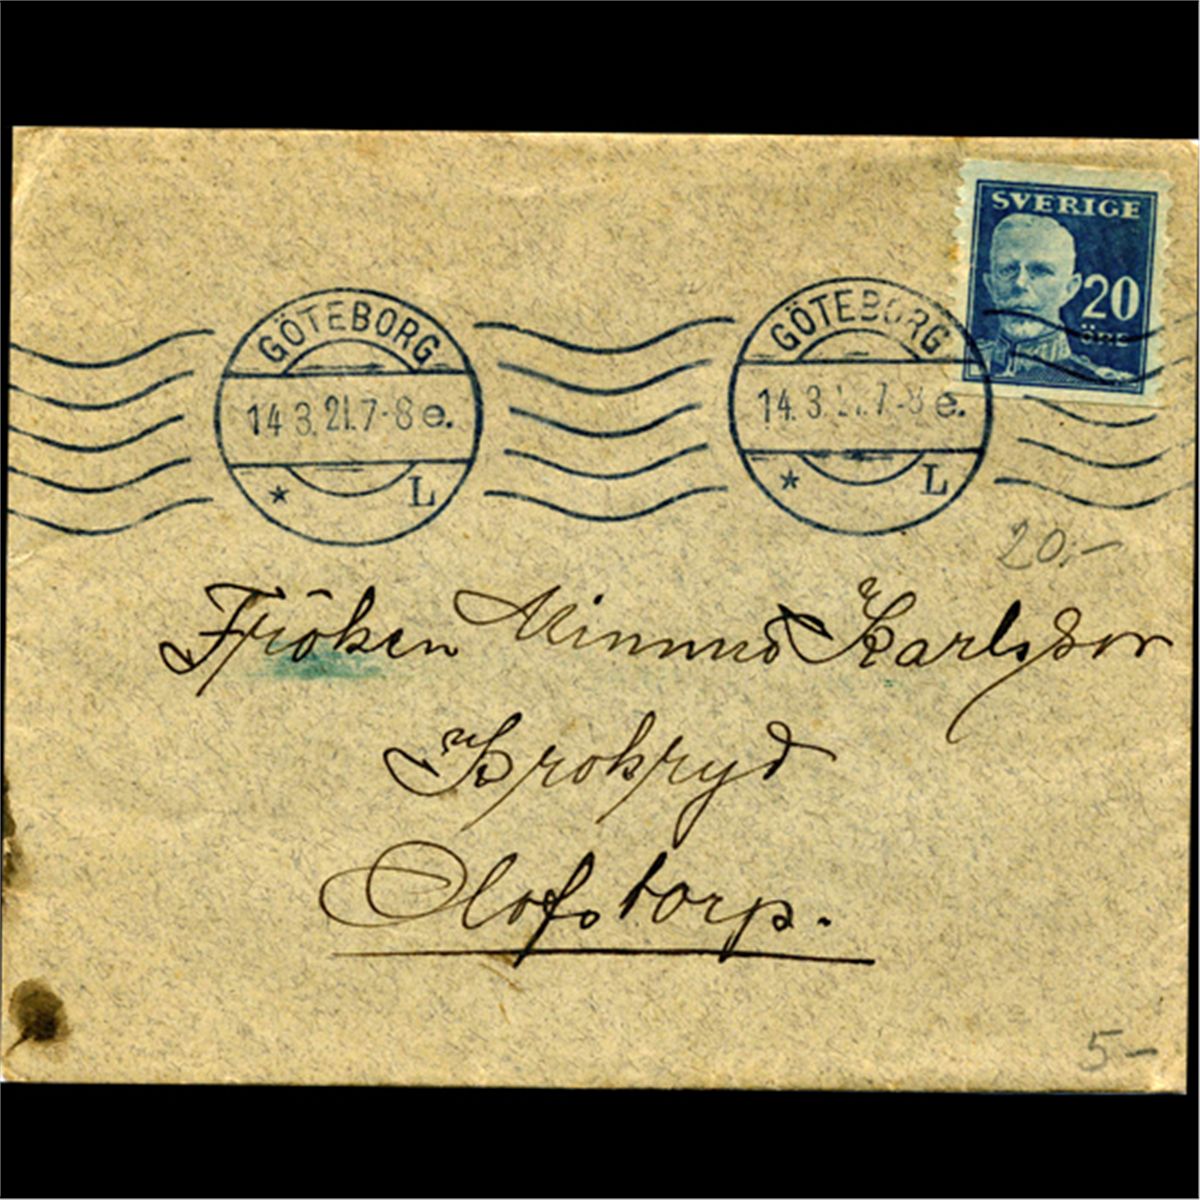 SVERIGE
20
öre
GÖTEBORG
14 3.21.7-8 e.
* L
GÖTEBORG
14. 3. 21.7-8 e.
* L
20:-
Fröken Karlsson
Krokryd
Olofstorp.
5-